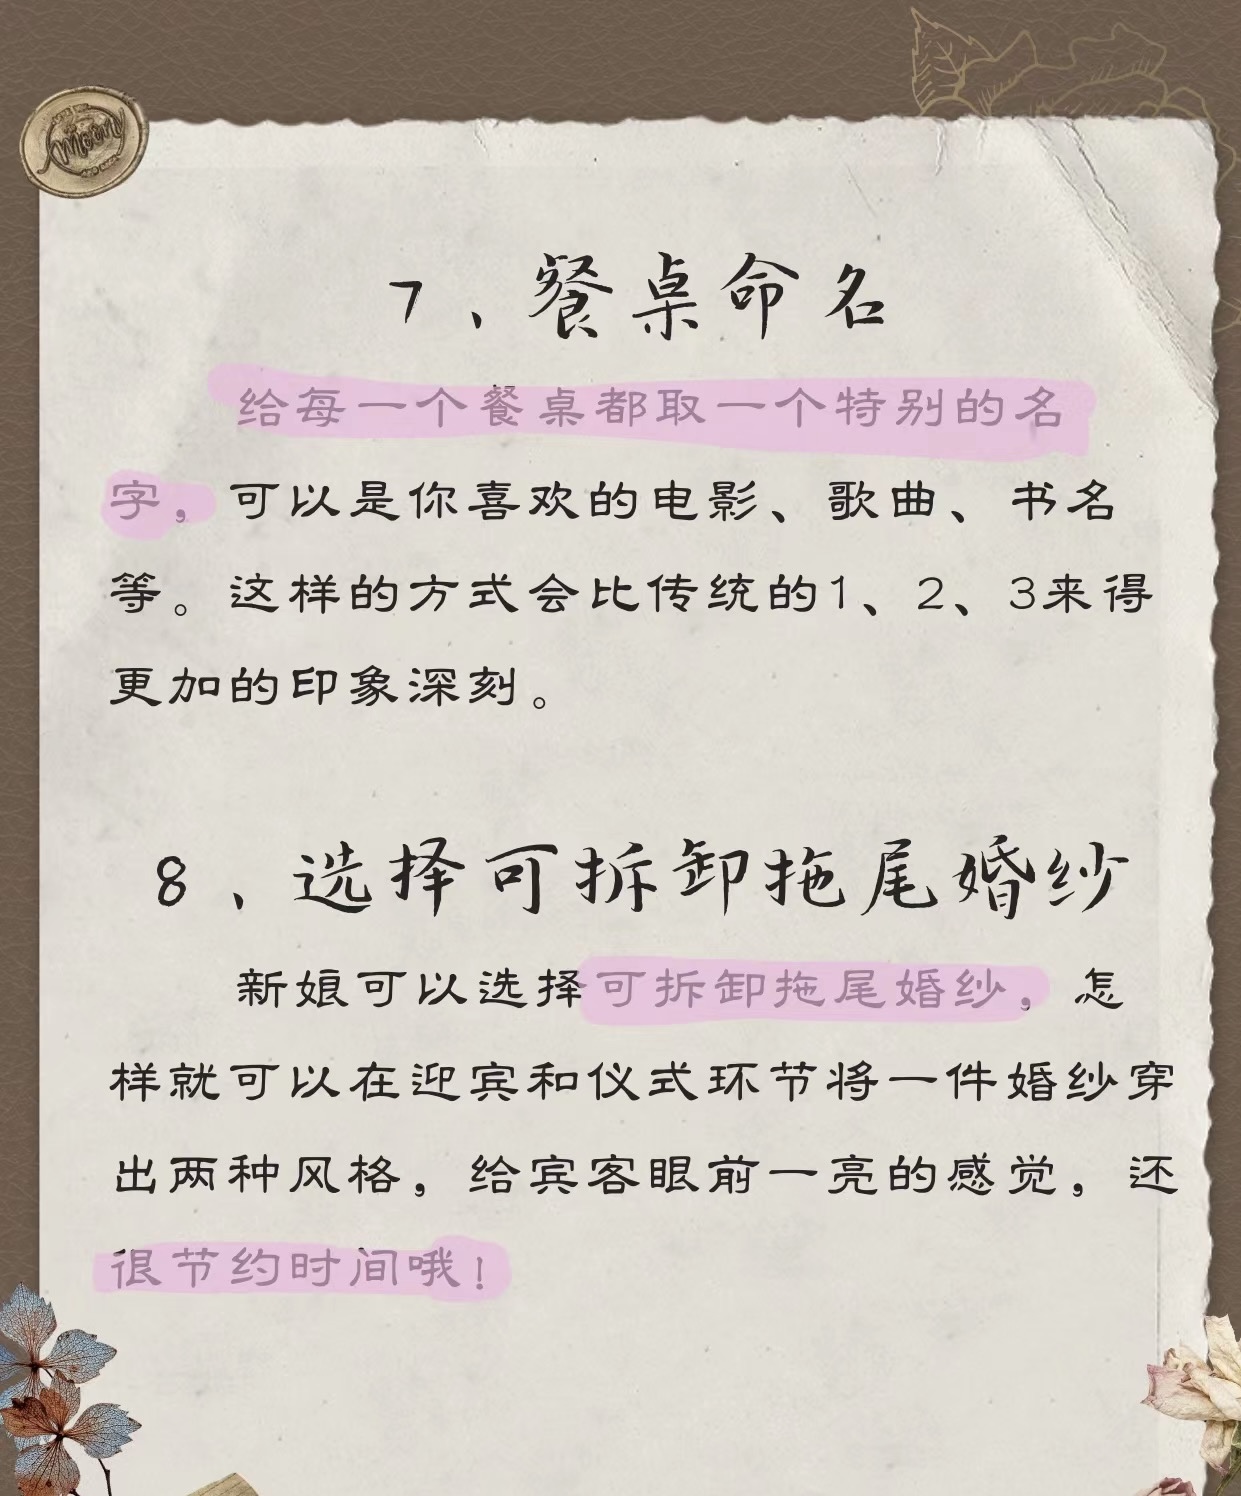 Moon
7、餐桌命名
给每一个餐桌都取一个特别的名
字，可以是你喜欢的电影、歌曲、书名
等。这样的方式会比传统的1、2、3来得
更加的印象深刻。
8、选择可拆卸拖尾婚纱
新娘可以选择可拆卸拖尾婚纱，怎
样就可以在迎宾和仪式环节将一件婚纱穿
出两种风格，给宾客眼前一亮的感觉，还
很节约时间哦！